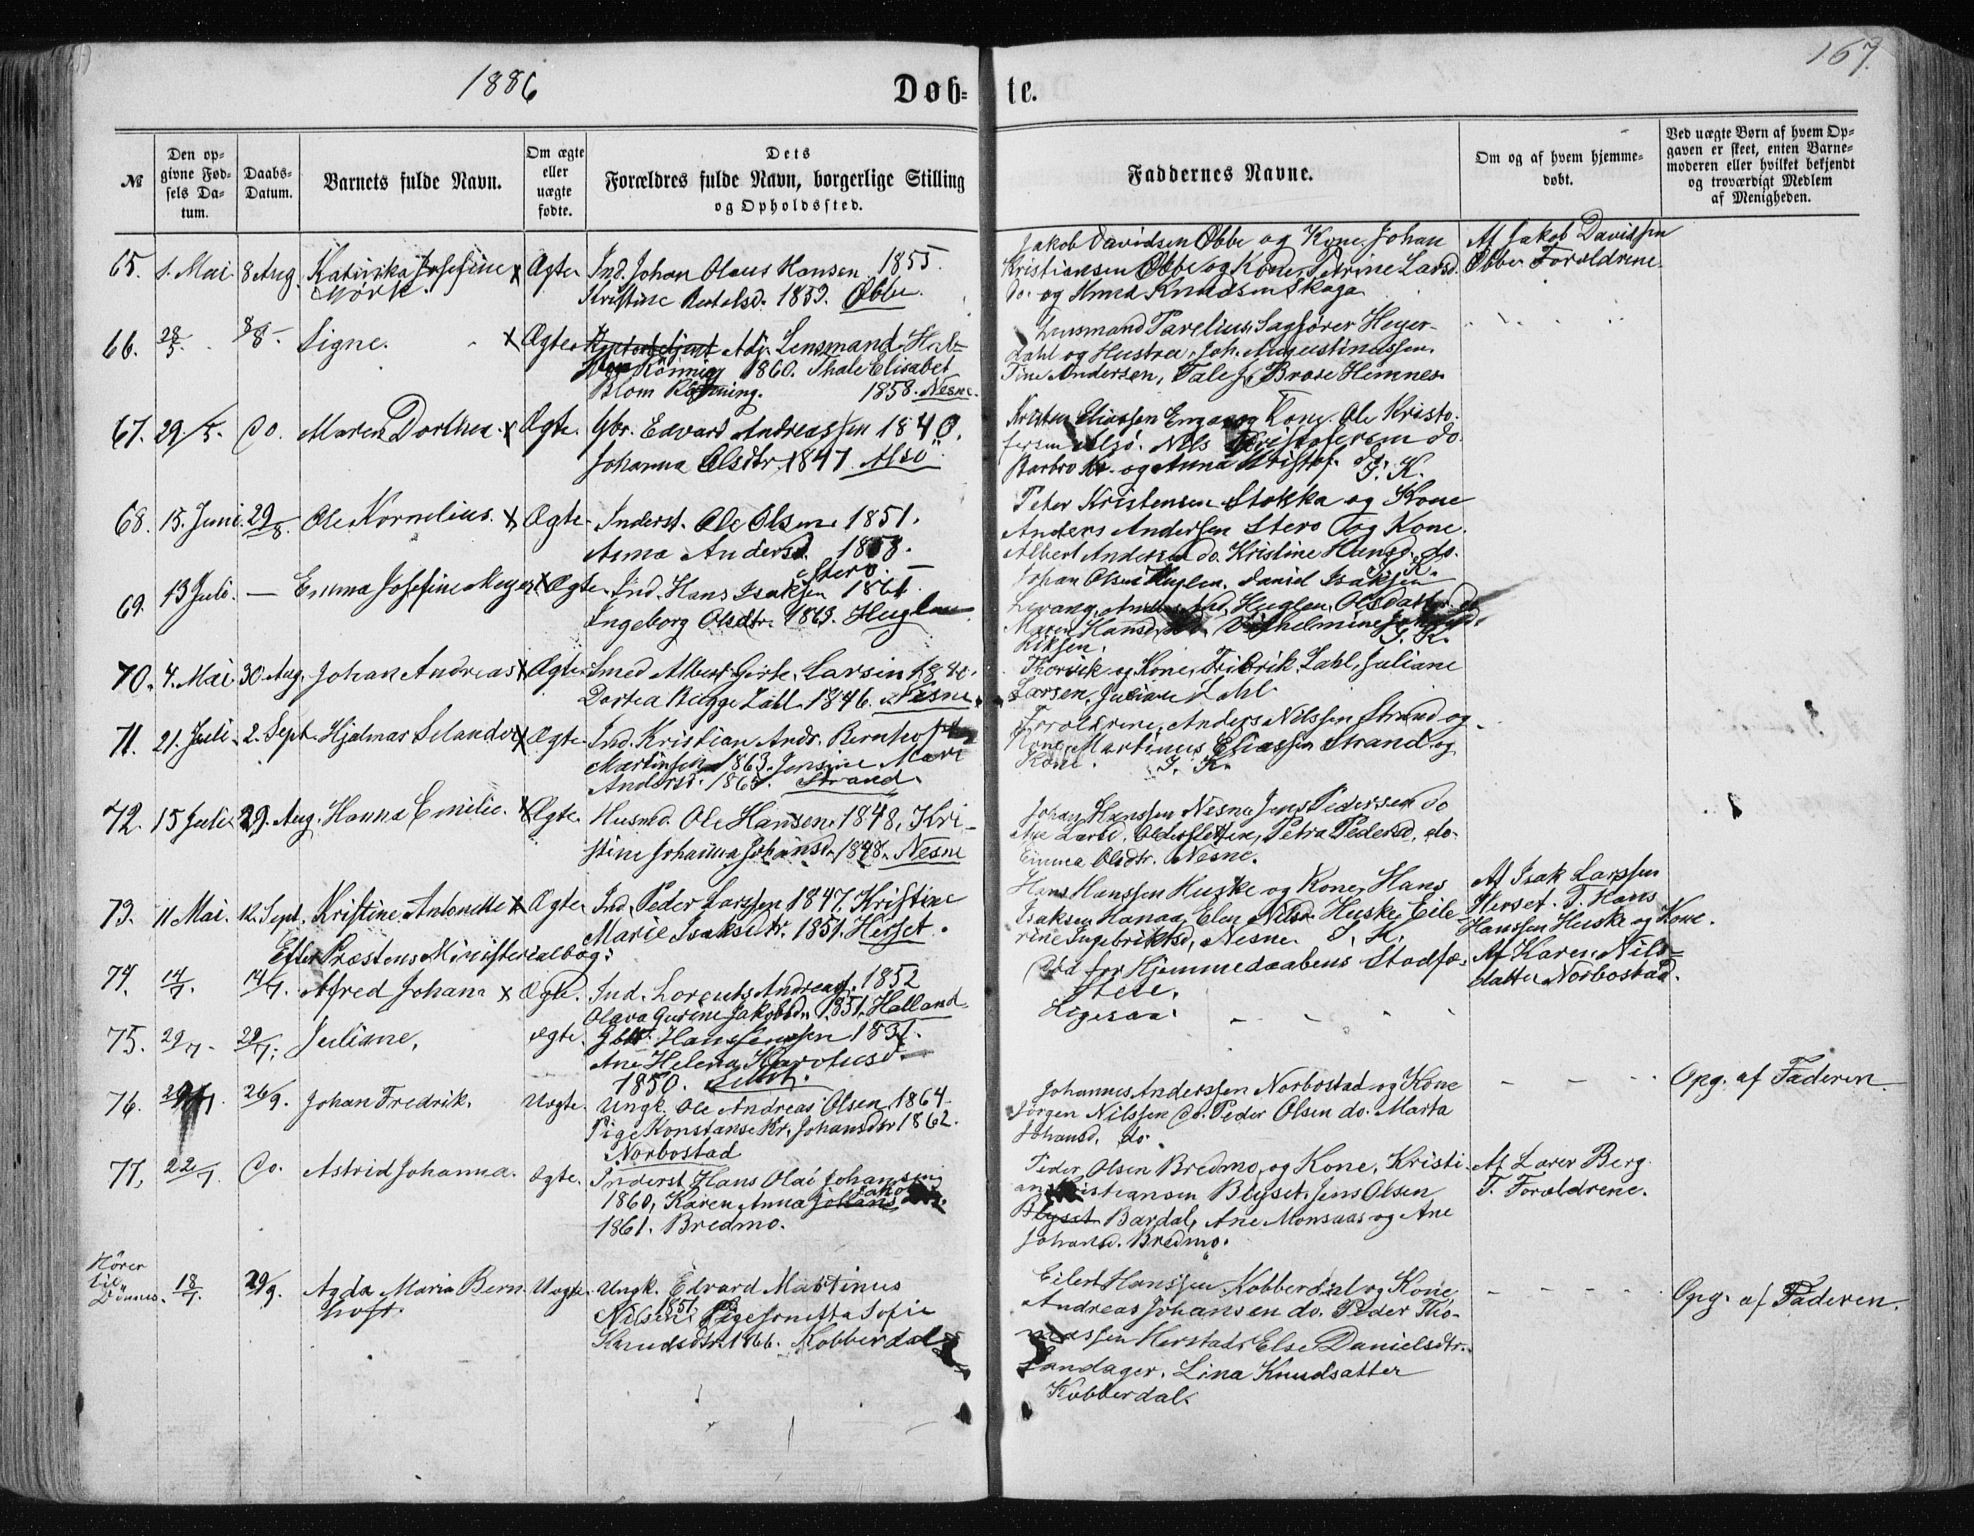 1886
Døb= te.
167.
№
Den op=
givne Fød=
sels Da=
tum.
Daabs=
Datum.
Barnets fulde Navn.
Om ægte
eller
uægte
fødte.
Dets
Forældres fulde Navn, borgerlige Stilling
og Opholdssted.
Faddernes Navne.
Om og af hvem hjemme=
døbt.
Ved uægte Børn af hvem Op=
gaven er skeet, enten Barne=
moderen eller hvilket bekjendt
og troværdigt Medlem
af Menigheden.
65. 1. Mai 8 Aug. Katinka Josefine x Ægte Ind. Johan Olaus Hansen 1855.
Mørk. Kristine Bertelsd. 1853. Øbbe.
Jakob Davidsen Øbbe og Kone, Johan
Kristiansen Øbbe og Kone, Petrine Larsd.
do. og Anna Knudsen Skaga
Af Jakob Davidsen
Øbbe. Forældrene.
66. 28/5 8/8 Signe. x Ægte Adj. Lensmand
Rønning 1860. Thale Elisabet
Blom Rønning. 1858. Nesne.
Lensmand Parelius, Sagfører Heyer-
dahl og Hustru, Joh. Augustinussen,
Tine Andersen, Tale J. Brose Hemnes.
67. 29/5. Do. Maren Dorthea. x Ægte. Gbr. Edvard Andreassen 1840.
Johanna Olsdtr. 1847. Alsø.
Eliassen Engan og Kone. Ole Kristo-
fersen Alsø. Nils Kristofersen do.
Barbro Kr. og Anna Kristof. do. I. K.
68. 15. Juni 29/8. Ole Kornelius. x Ægte. Inderst. Ole Olsen 1851.
Anna Andersd. 1858.
Stero.
Peter Kristensen Stokka og Kone
Anders Andersen Stero og Kone.
Albert Andersen do. Kristine Hansd. do.
I. K.
69. 13 Juli. — Emma Josefine Meyer x Ægte. Ind. Hans Isaksen 1861.
Ingeborg Olsdtr. 1863. Huglen
Johan Olsen Huglen. Daniel Isaksen
Levang, Huglen, Olsdatter do
Maren Hansd. do. Vilhelmine
riksen. I. K.
70. 4. Mai 30 Aug. Johan Andreas x Ægte. Smed Albert Larsen
Dortea Bugge Zahl 1846. Nesne.
og Kone, Fredrik Zahl, Juliane
Larsen, Juliane Zahl
71. 21. Juli 2. Sept. Hjalmar Selander x Ægte. Ind. Kristian Andr. Bernhoft
Martinsen 1863. Jensine Marie
Andersd. 1865. Strand.
Forældrene, Anders Nilssen Strand og
Kone, Martinus Eliassen Strand og
Kone. I. K.
72. 15 Juli 29. Aug. Hanna Emilie. x Ægte. Husmd. Ole Hansen 1848, Kri-
stine Johanna Johansd. 1848. Nesne
Johan Hanssen Nesna, Jens Pedersen do
Petra Pedersd. do.
Emma Olsdtr. Nesne.
73. 11 Mai. 12. Sept. Kristine Antonette x Ægte. Ind. Peder Larssen 1847. Kristine
Marie Isaksdtr. 1851. Herset.
Hans Hanssen Huske og Kone, Hans
Isaksen Hanaa, Elen Nilsd. Huske, Eile-
rine Ingebriktsd. Nesne. I. K.
Af Isak Larssen
Herset. T. Hans
Hanssen Huske og Kone.
Efter Præstens Ministerialbog:
74. 14/7. 14/7. Alfred Johan x Ægte. Ind. Lorents Andreas. 1852
Olava Gurine Jakobsd. 1851. Halland
Død før Hjemmedaabens Stadfæ-
stese.
Af Karen Nils-
datter Norbostad.
75. 29/7. 29/7. Juliane. Ægte. Gbr. Hans Jenssen 1831.
Ane Helena
1850.
Ligesaa.
76. 26/9. Johan Fredrik. Uægte. Ungk. Ole Andreas Olsen 1864.
Pige Konstanse Kr. Johansdtr 1862.
Norbostad
Johannes Anderssen Norbostad og Kone
Jørgen Nilssen do. Peder Olsen do. Marta
Johansd. do.
Opg. af Faderen.
77. 22/7 Do. Astrid Johanna. Ægte. Inderst Hans Olai Johansen
1860, Karen Anna
1861. Bredmo.
Peder Olsen Bredmo, og Kone, Kristi-
an Kristiansen Blyset. Jens Olsen
Blyset Bardal, Ane Monsaas og Ane
Johansd. Bredmo.
Af Lærer Berg
T. Forældrene.
Hører
til
Dønnes. 18/7. 29/9. Agda Maria Bern
hoft. Uægte. Ungk. Edvard Martinus
Nilsen 1851. Pige Jonetta Sofie
Knudsdtr. 1866. Kobberdal
Eilert Hanssen Kobberdal og Kone,
Andreas Johansen do. Peder Tho-
massen Herstad, Else Danielsdtr.
Sandager. Lina Knudsatter
Kobberdal.
Opg. af Faderen.